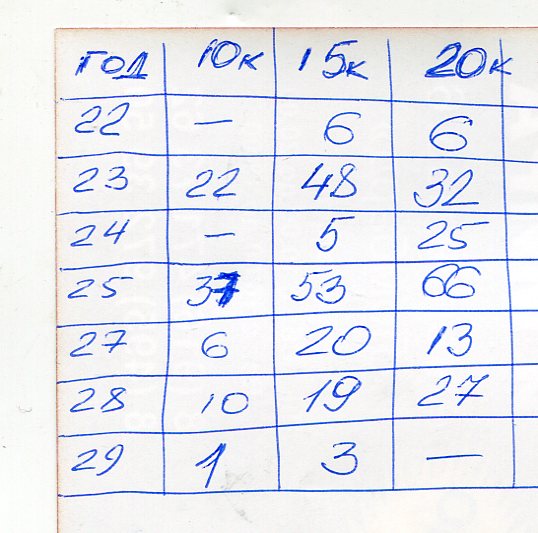 год 10к 15к 20к
22 — 6 6
23 22 48 32
24 — 5 25
25 37 53 66
27 6 20 13
28 10 19 27
29 1 3 —